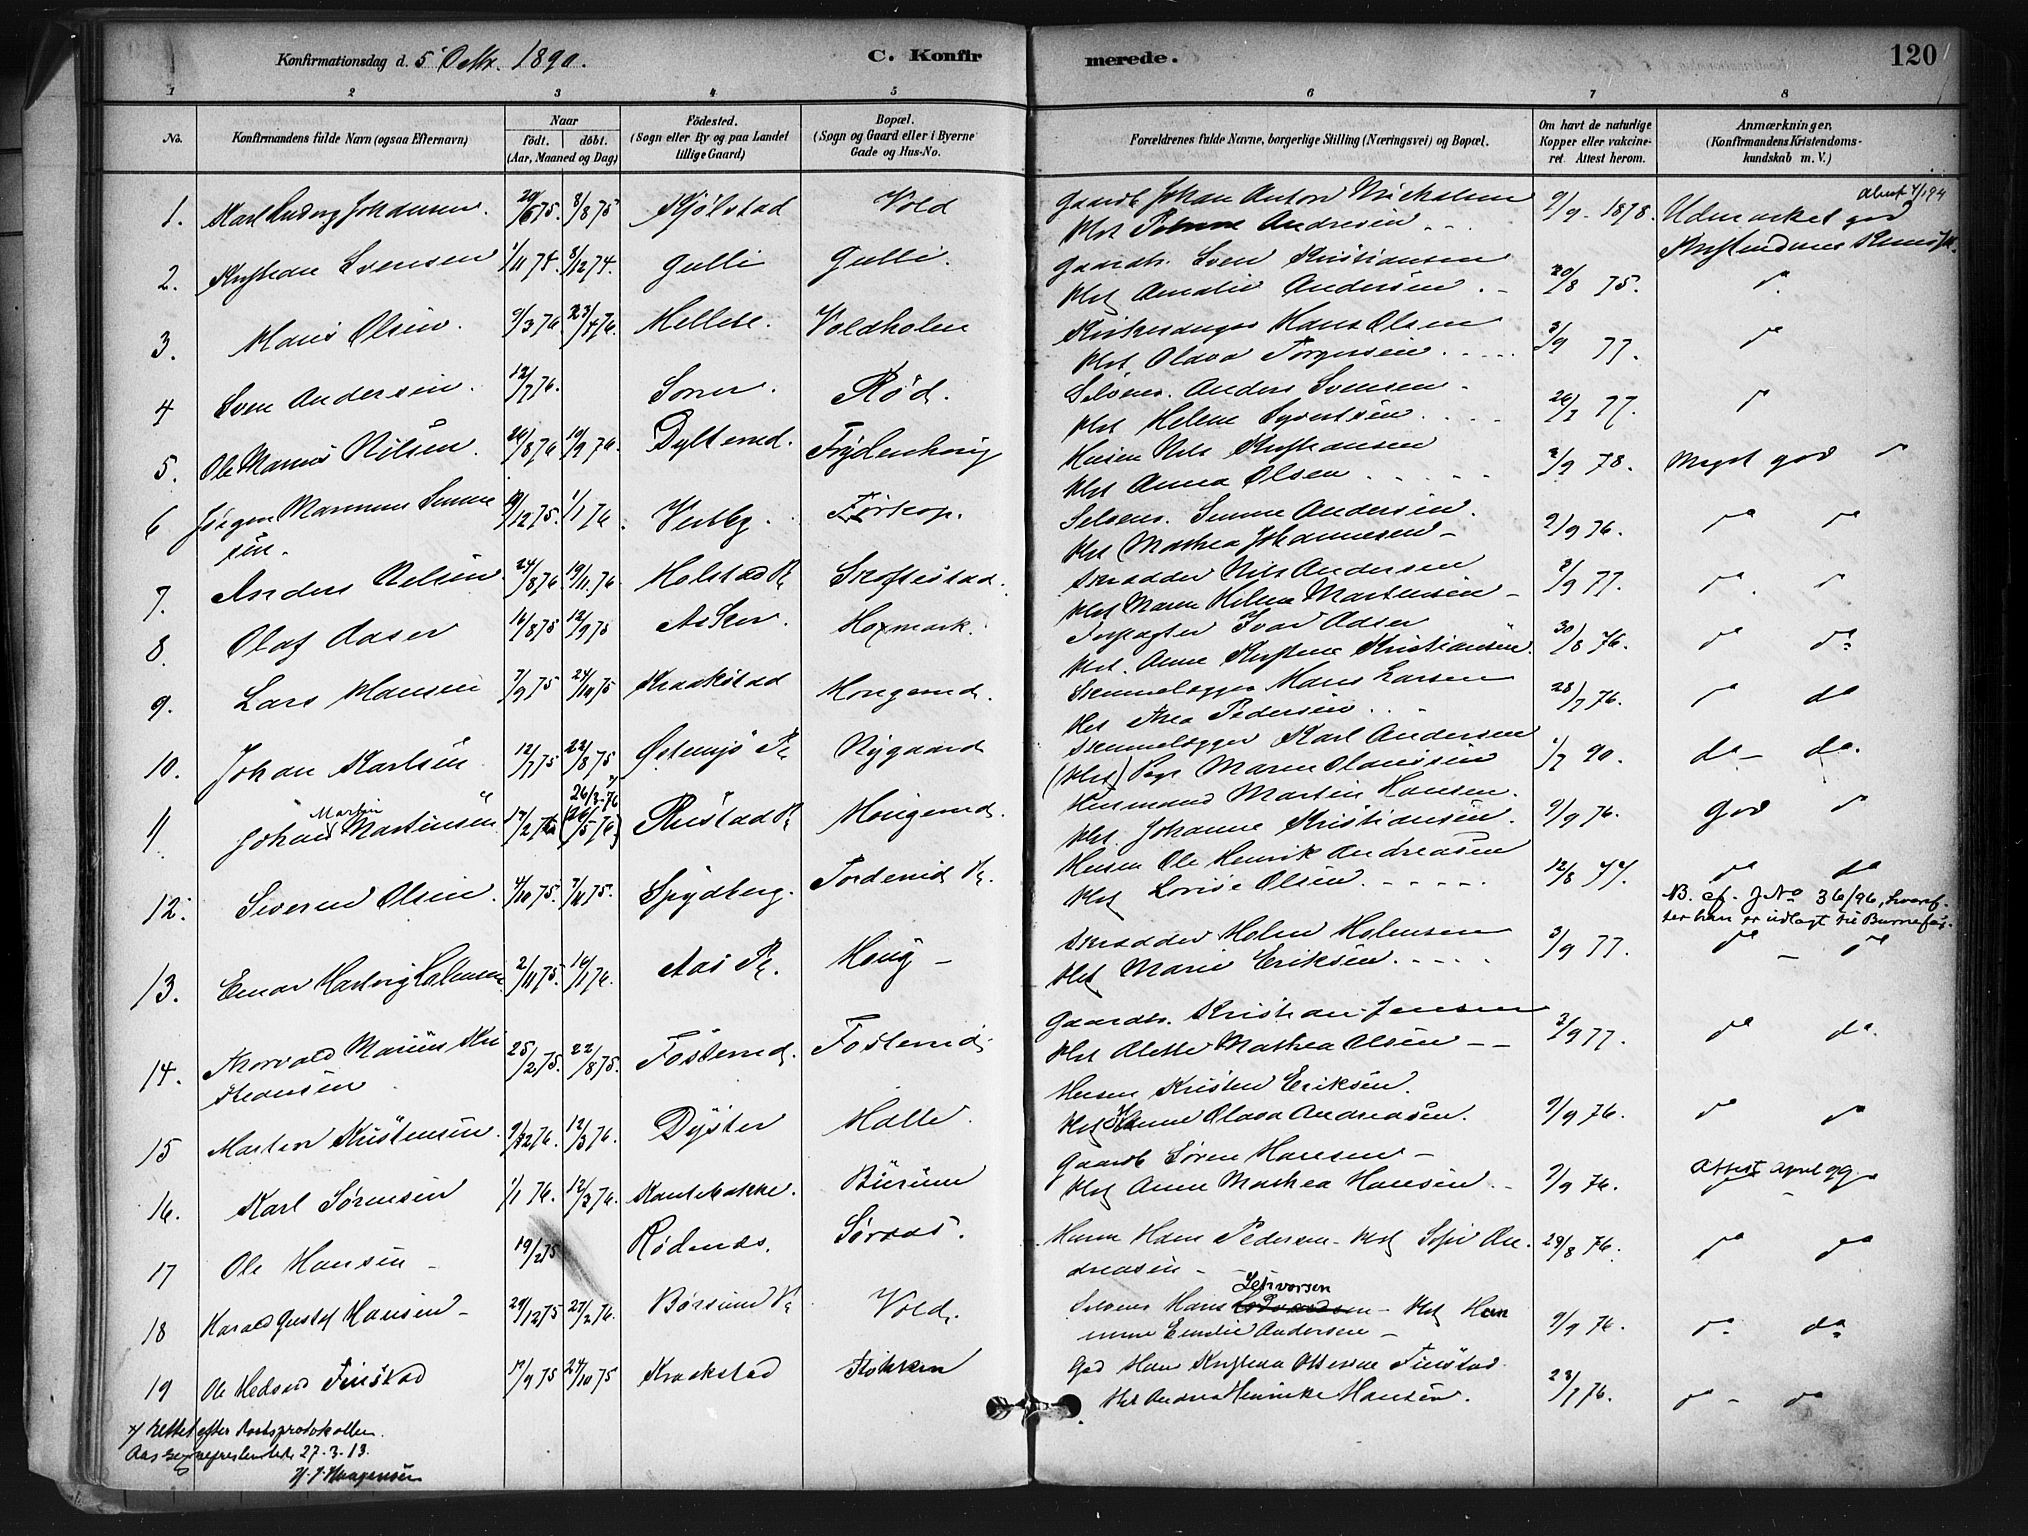 Konfirmationsdag d. 5 Oktr. 1890.
C. Konfirmerede.
120
1 2 3 4 5 6 7 8
No.
Konfirmandens fulde Navn (ogsaa Efternavn)
Naar
födt. döbt.
(Aar, Maaned og Dag)
Födested.
(Sogn eller By og paa Landet
tillige Gaard)
Bopæl.
(Sogn og Gaard eller i Byerne
Gade og Hus-No.
Forældrenes fulde Navne, borgerlige Stilling (Næringsvei) og Bopæl.
Om havt de naturlige
Kopper eller vakcine-
ret. Attest herom.
Anmærkninger.
(Konfirmandens Kristendoms-
kundskab m. V.)
1. Karl Ludvig Johansen. 8/8 75 Kjölstad Vold
Gaardb Johan Anton
Andresen 9/9 1878. Udmærket god
2. Kristian Svensen 1/11 74. 8/12 74. Gulli Gulli.
Gaardb. Sven Kristiansen
Hst Amalie Andersen. 20/8 75. do
3. Hans Olsen. 9/3 76. 23/4 76. Hellese. Voldholen
Kirkesanger Hans Olsen
Hst Olava Torgersen 3/9 77. do
4 Sven Andersen. 12/7 76. Röd.
Selveier. Anders Svensen
Hst Helene Syvertsen. 26/7 77. do
5. Ole Marius Nilsen. 26/8 76 19/9 76. Dylterud. Frydenhoug
Husm Nils Kristiansen
Hst Anna Olsen 2/9 78. Meget god do
6 Jörgen Marinius Simen
sen. 19/12 75. 1/1 76. Vestby.
Selveier. Simen Andersen.
Hst Mathea Johannesen 9/9 76. do do
7. Anders Nilsen 24/8 76 19/11 76 Holstad Kr Skoftestad.
Skrædder Nils Andersen
Hst Maren Martinsen 2/9 77. do do
8. Olaf Aaser 16/8 75 12/9 75 Asker. Hogsmark.
Forpagter Ivar Aaser
Hst. Anne Kristine Kristiansen. 30/8 76. do do
9. Lars Hansen 7/9 75 24/10 75 Kraakstad Hougerud.
Tømmelægger Hans Larsen
Hst Thea Pedersen 28/7 76. do do
10. Johan Karlsen 12/7 75 22/8 75 Östensjö Kr Nygaard
Karl Andersen
(Hst) Pige Maren Olausen 1/7 90. do do.
11 Johan Martin Martinsen 14/2 26/3 76 (26/5 76) Rustad Kr Hougerud.
Husmand Martin Hansen.
Hst. Johanne Kristiansen. 9/9 76. God do
12. Severin Olsen 4/10 75. 7/11 75. Spydberg. Torderud Kr.
Husm Ole Henrik Andreasen
Hst Lovise Olsen 12/8 77. do do
N. cf. J No 36/96, hvoref-
ter han er udlagt til Barnefar.
13. Einar Hartvig 2/11 75. 16/1 76. Aas Kr. Houg
Skrædder Holm Holmsen
Hst Marie Eriksen 3/9 77. do do
14. Thorvald Marius Kri
stiansen 25/2 75. 22/8 75. Fosterud. Fosterud.
Gaardb. Kristian Jensen
Hst Alette Mathea Olsen 3/9 77. do do.
15 Martin Kristensen. 9/12 76. 12/3 76. Dyster Holte.
Husm Kristen Eriksen.
Hst Hanne Olava Andreasen. 9/9 76. do do
16. Karl Sörensen 1/1 76. 12/3 76. Kantebakke. Burum
Gaardb Sören Hansen
Hst Anne Mathea Hansen. 9/9 76. Attest April 99.
17 Ole Hansen 19/2 75 Rödenæs. Söraas.
Husm Hans Pedersen Hst Sofie An
dreasen 29/8 76. do do
18 Harald Gustaf Hansen 29/12 75 27/2 76. Börsum Kr Vold.
Selveier Hans Lehvorsen Hst Han
nine Emilie Andersen 9/9 76. do do
19 Ole Hedvard Finstad 17/9 75 24/10 75 Kraakstad Flikken
Gbd Hans Kristian Ottersen Finstad
Hst Andrea Henrikke Hansen. 28/7 76. do do
x/ Rettet efter daabsprotokollen.
Aas sogneprestembede 27-3-13.
H. J. Haagensen